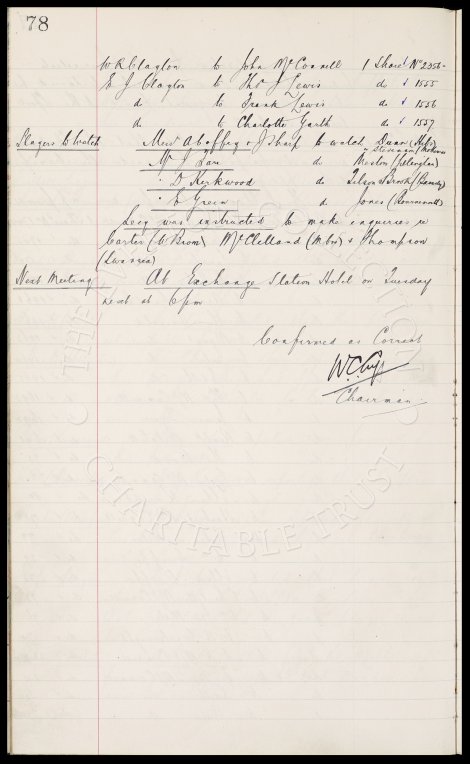 78
W R Clayton to John McConnell 1 Share No 2356
E J Clayton to Thos J Lewis do " 1555
do to Frank Lewis do " 1556
do to Charlotte Garth do " 1557
Players to Watch Messrs & J Sharp to watch Duan (Hibs)
Stevenson (Motherwell)
Mr J do Weston (Islington)
" D Kirkwood do Tilson & Brook (Barnsley)
" E Green do Jones
Secy was instructed to make enquiries re
Carter (W Brom) McClelland (Mbro) & Thompson
(Swansea)
Next Meeting At Exchange Station Hotel on Tuesday
next at 6 pm
Confirmed as Correct
W.C. Cuff
Chairman
CHARITABLE TRUST